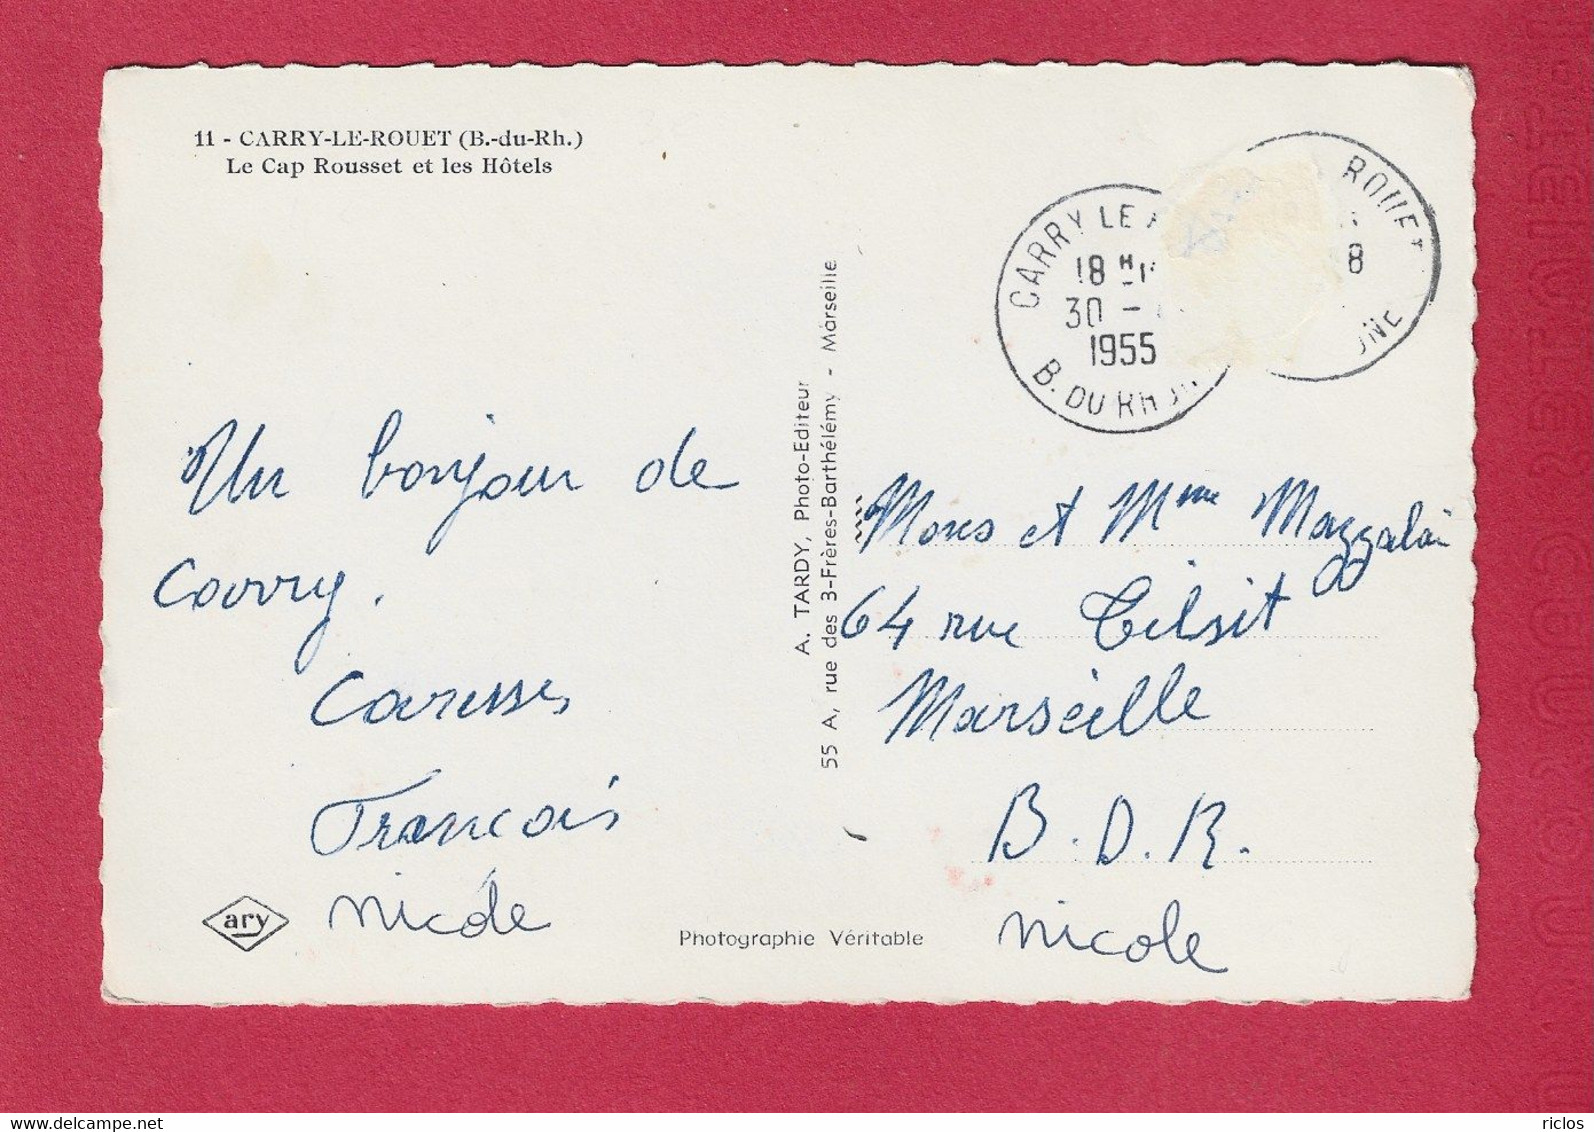 11 - CARRY-LE-ROUET (B.-du-Rh.)
Le Cap Rousset et les Hôtels
Un bonjour de
Carry.
Caresses
Francois
Nicole
ary
Photographie Véritable
A. TARDY, Photo-Editeur
55 A, rue des 3-Frères-Barthélémy - Marseille
CARRY LE
18 H
30 -
1955
B. DU RH
ROUET
8
Mons et Mme
64 rue Tilsit
Marseille
B.D.R.
Nicole
delcampe.net
riclos